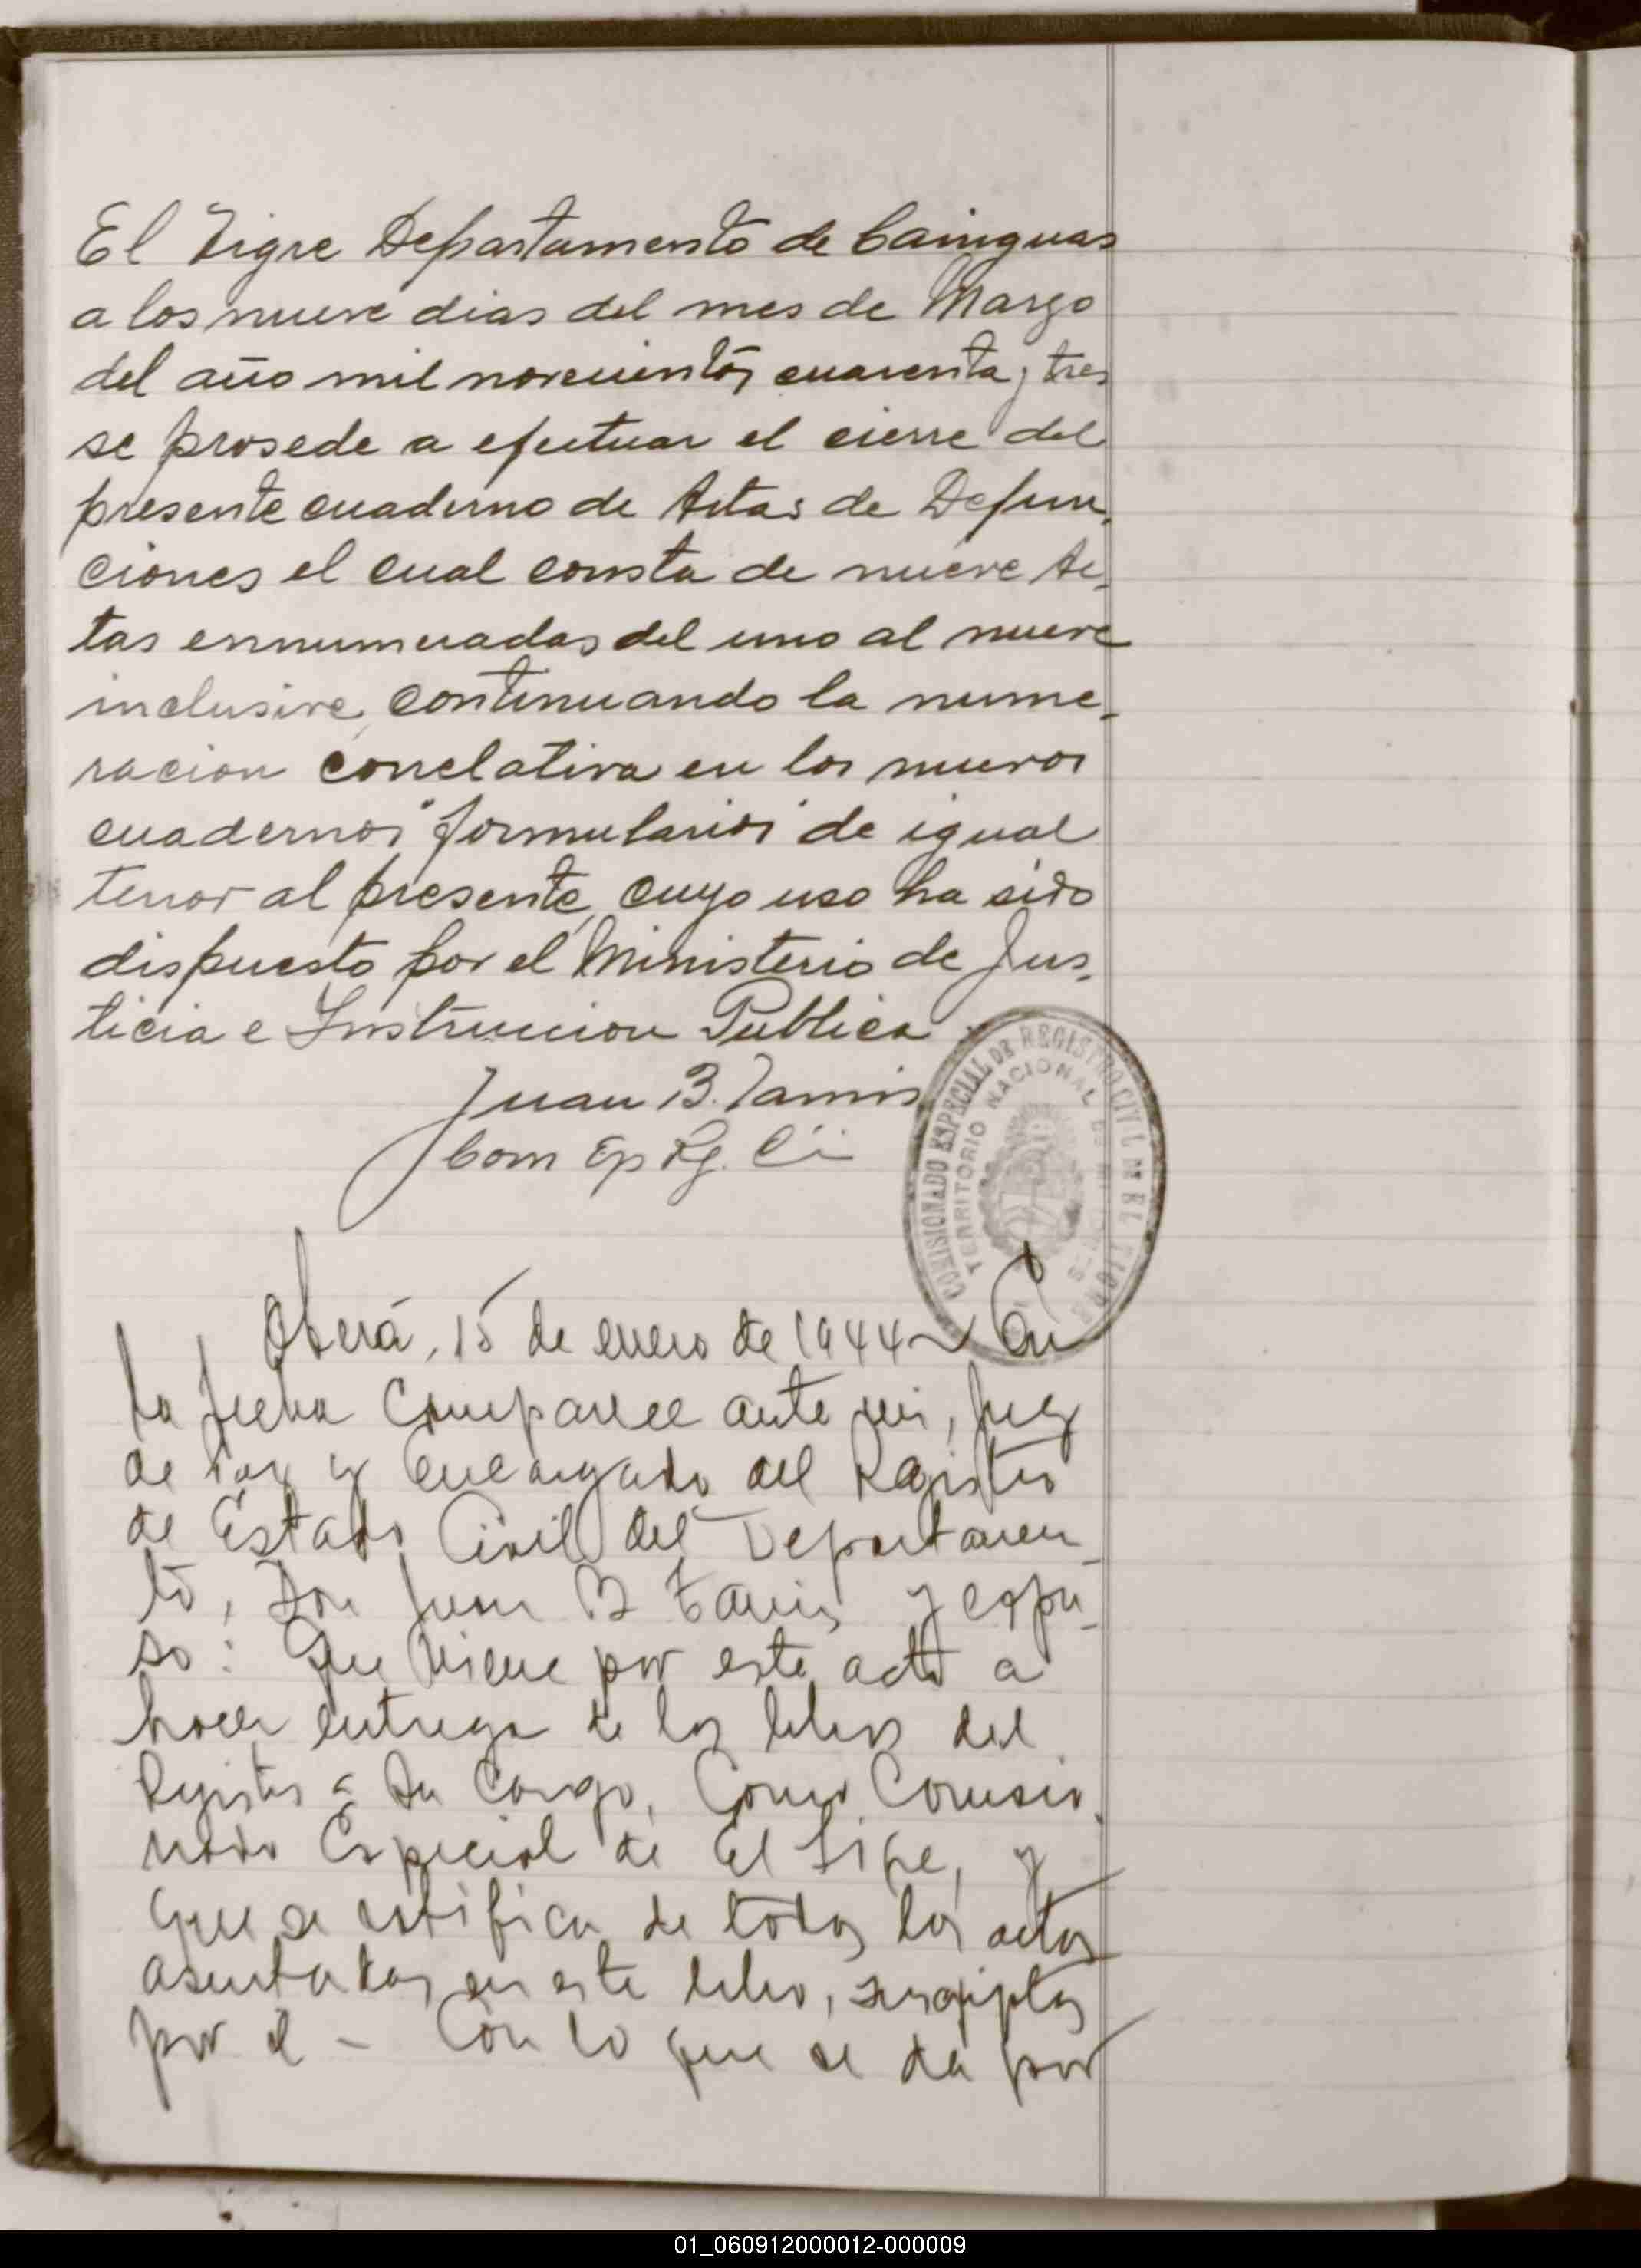 El Tigre Departamento de Cainguas
a los nueve dias del mes de Marzo
del año mil novecientos cuarenta y tres
se prosede a efectuar el cierre del
presente cuaderno de Actas de Defun-
ciones el cual consta de nueve Ac-
tas ennumeradas del uno al nueve
inclusive, continuando la nume-
racion correlativa en los nuevos
cuadernos "formularios" de igual
tenor al presente, cuyo uso ha sido
dispuesto por el Ministerio de Jus-
ticia e Instruccion Publica
Juan B. Tamis
Com Esp Rg. Ci
COMISIONADO ESPECIAL DE REGISTRO CIVIL EN EL TIGRE
TERRITORIO NACIONAL DE MISIONES
Oberá, 15 de enero de 1944 En
la fecha comparece ante mi, Juez
de Paz y Encargado del Registro
de Estado Civil del Departamen-
to, Don Juan B Tamis y expu-
so: Que viene por este acto a
hacer entrega de los libros del
Registro a su cargo, como Comisio-
nado Especial de El Tigre, y
que se ratifica de todas las actas
asentadas en este libro, suscriptas
por el - Con lo que se da por